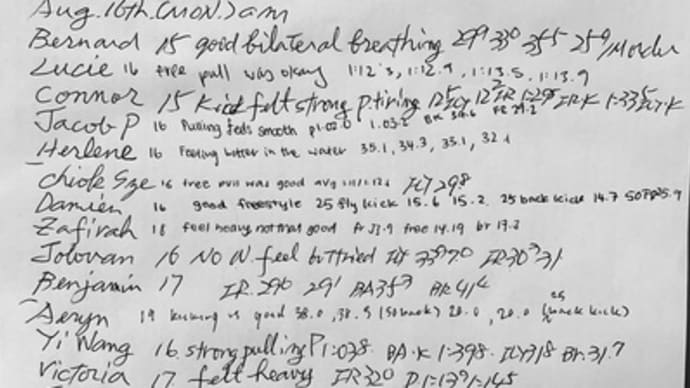 Aug. 16th. (MON.) am
Bernard 15 good bilateral breathing 29⁹ 33⁰ 35⁵ 25⁹
Lucie 16 free pull was okay 1:12.3, 1:12.9, 1:13.5, 1:13.9
Connor 15 Kick felt strong P.tiring
Jacob P 16 Pulling feels smooth
Herlene 16 Feeling better in the water 35.1, 34.3, 33.1, 32.1
Chiok Sze 16 free pull was good avg
Damien 16 good freestyle 25 fly kick 15.6 15.2 25 back kick 14.7
Zafirah 18 feel heavy not that good free 14.19 br
Jolovan 16 NO W. feel
Benjamin 17 FR. 29⁰ 29¹ BA 35³ BR 41⁴
Aeryn 19 kicking is good 38.0, 38.5 (50 back) 20.0, 20.0 (25 back kick)
Yi Wang 16. strong pulling P 1:038. BA.K 1:398. FLY 318 Br. 31.7
Victoria 17 felt heavy FR 320 P. 1:13⁹ 1:14⁵